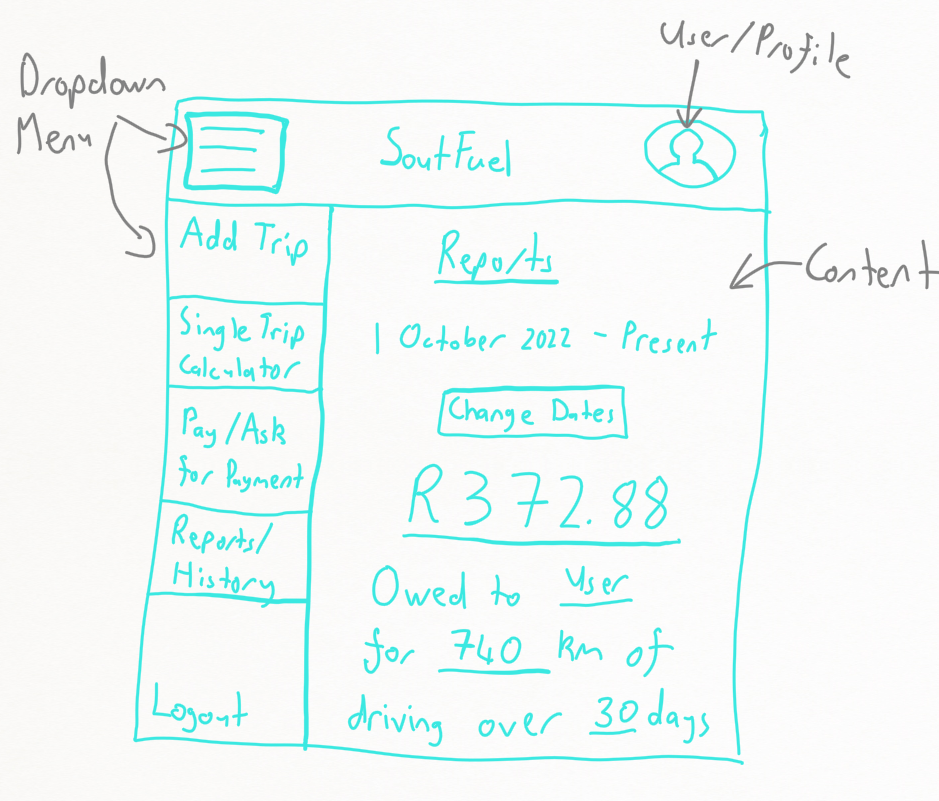 User/Profile
Dropdown
Menu
SoutFuel
Add Trip
Single Trip
Calculator
Pay/Ask
for Payment
Reports/
History
Logout
Reports
1 October 2022 - Present
Change Dates
R372.88
Owed to User
for 740 km of
driving over 30 days
Content